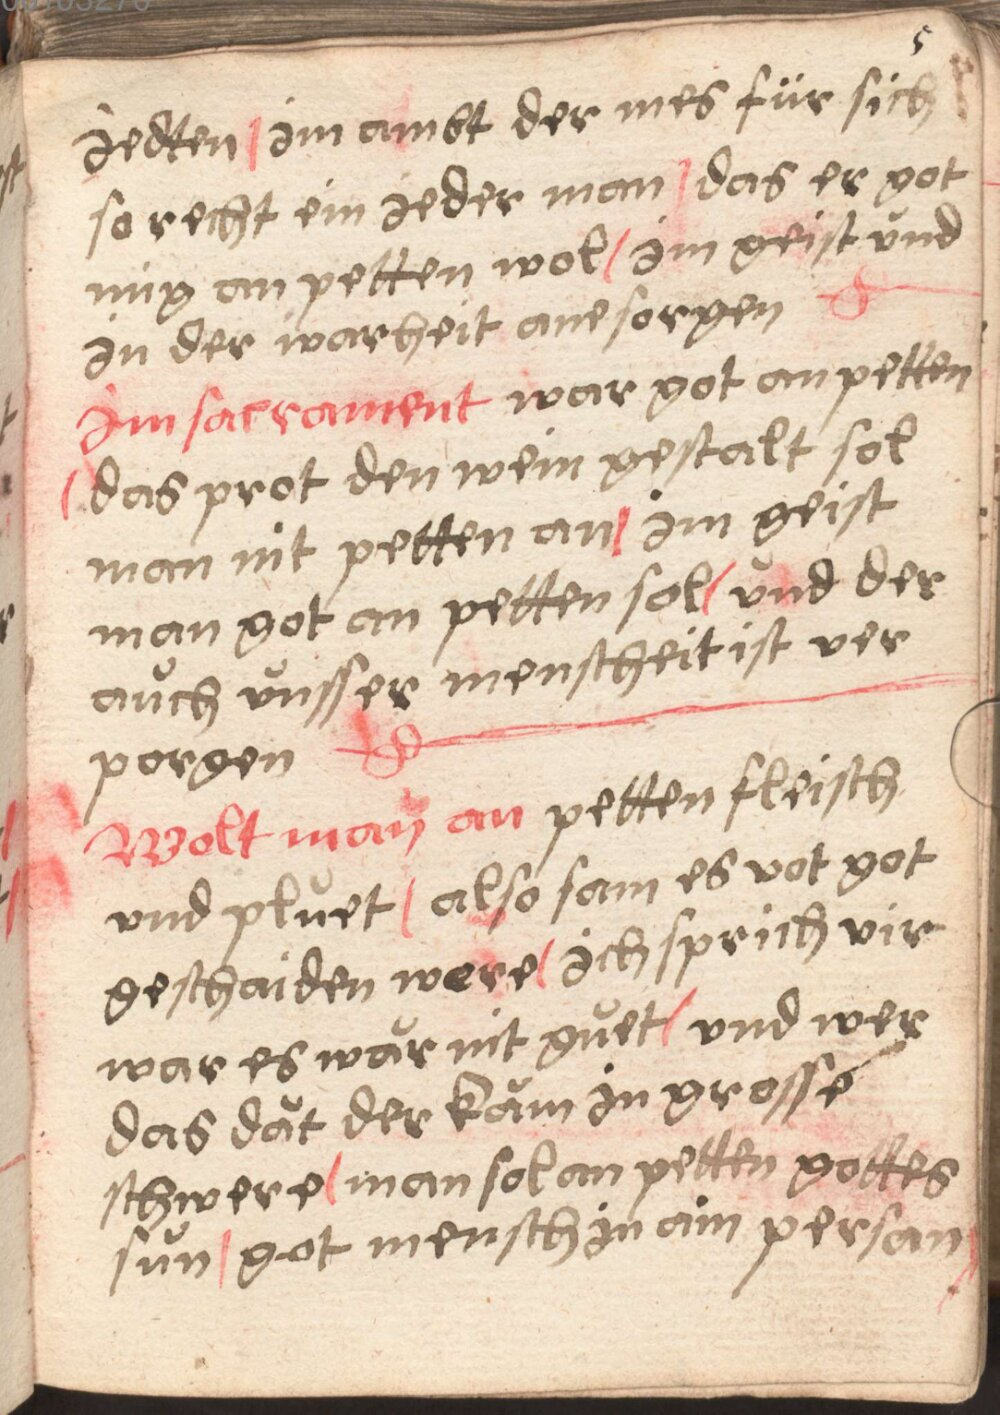 5
Jedten / Jm ambt der mes für sich
so recht ein jeder man / das er got
mug an petten wol / Jm geist vnd
Jn der warheit ane sorgen
Jm sacrament war got an petten
/ das prot den wein gestalt sol
man nit petten an / Jm geist
man got an petten sol / vnd der
auch vnsser menscheit ist ver
porgen
Wolt man an petten fleisch
vnd pluet / also sam es vot got
geschaiden were / Jch sprich vir
war es war nit guet / vnd wer
das dät der käm Jn grosse
schwere / man sol an petten gottes
sun / got mensch Jn ain person /